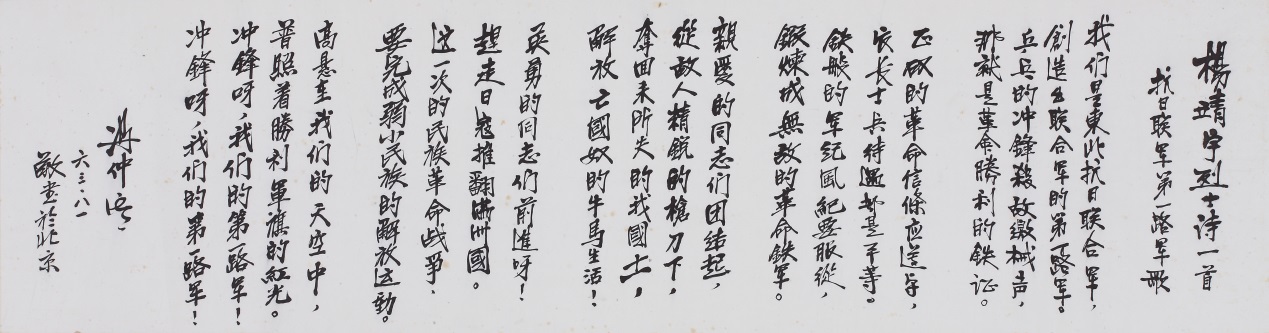 楊靖宇烈士诗一首
抗日联军第一路军歌
我们是東北抗日联合军，
創造出联合军的第一路军。
乒乓的冲鋒殺敌缴械声，
那就是革命勝利的鉄証。
正确的革命信條应遵守，
官长士兵待遇都是平等。
鉄般的军紀風紀要服從，
鍛煉成無敌的革命鉄军。
親愛的同志们团结起，
從敌人精銳的槍刀下，
奪回来所失的我國土，
解放亡國奴的牛馬生活！
英勇的同志们前進呀！
趕走日寇推翻满洲國。
这一次的民族革命战爭，
要完成弱小民族的解放运動。
高悬在我们的天空中，
普照着勝利軍旗的紅光。
冲鋒呀，我们的第一路军！
冲鋒呀，我们的第一路军！
馮仲云
六三.八.一
敬書於北京